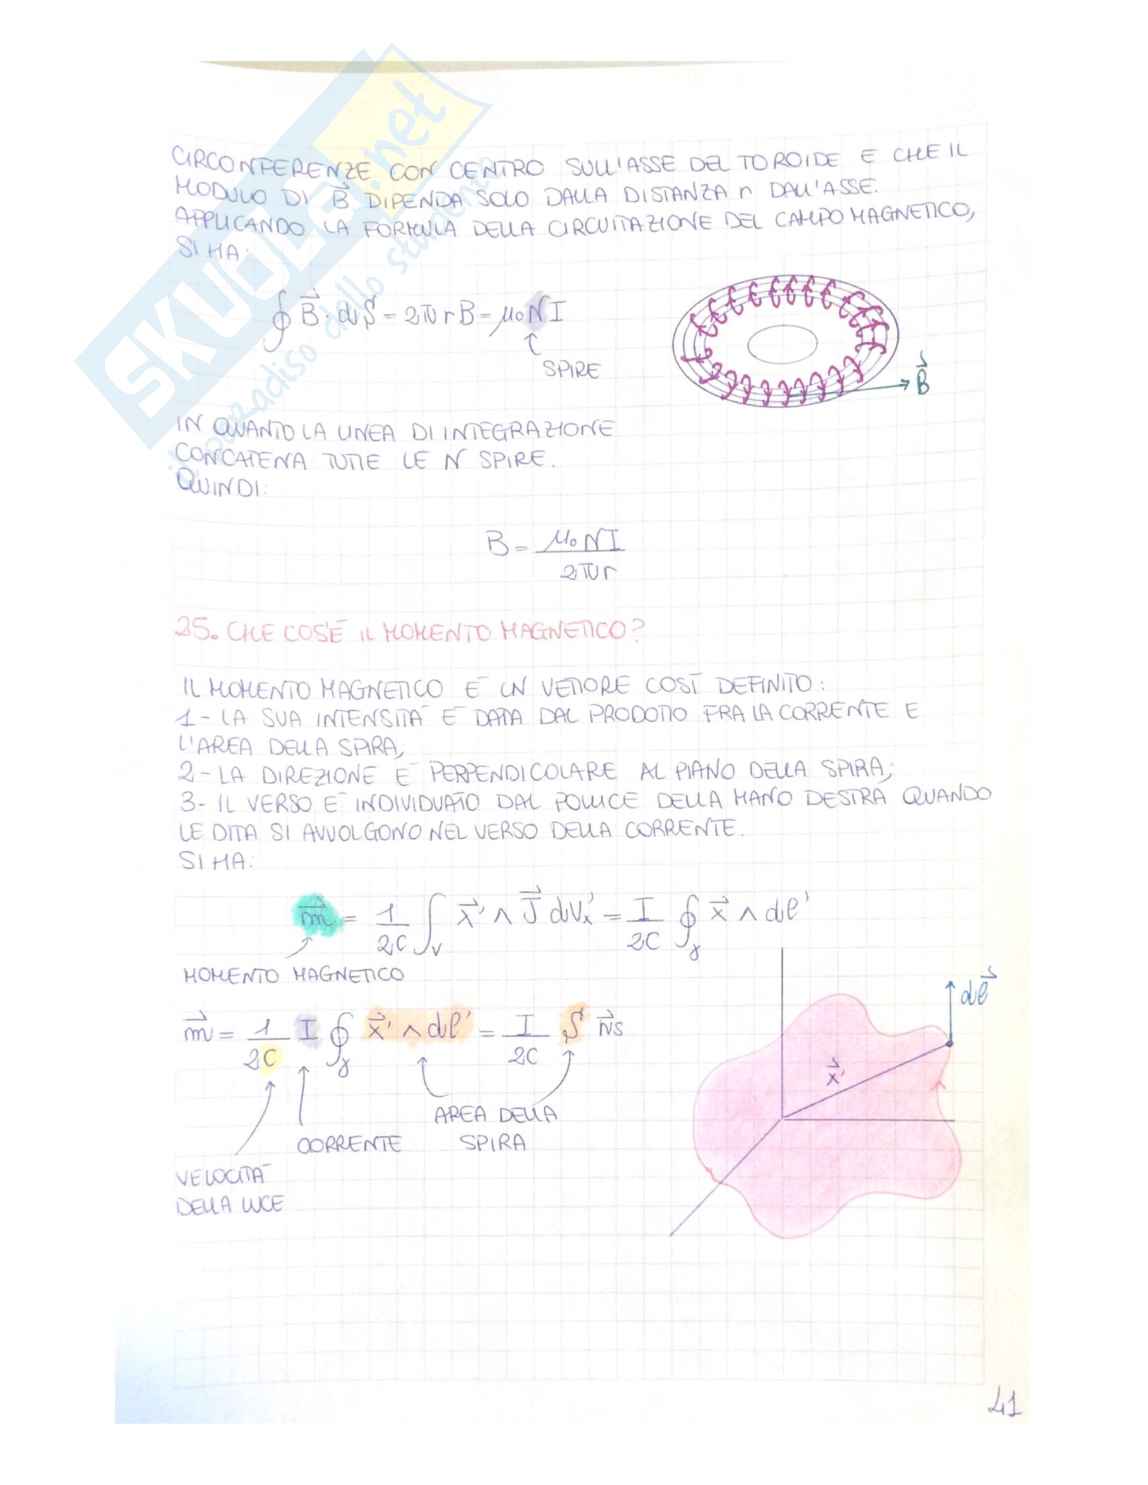 SKUOLA.net
il paradiso dello studente
CIRCONFERENZE CON CENTRO SULL'ASSE DEL TOROIDE E CHE IL
MODULO DI B⃗ DIPENDA SOLO DALLA DISTANZA r DALL'ASSE.
APPLICANDO LA FORMULA DELLA CIRCUITAZIONE DEL CAMPO MAGNETICO,
SI HA:
∮ B⃗ · dS = 2πrB = μ₀NI
SPIRE
B⃗
IN QUANTO LA LINEA DI INTEGRAZIONE
CONCATENA TUTTE LE N SPIRE.
QUINDI:
B = μ₀NI / 2πr
25. CHE COS'È IL MOMENTO MAGNETICO?
IL MOMENTO MAGNETICO È UN VETTORE COSÌ DEFINITO:
1- LA SUA INTENSITÀ È DATA DAL PRODOTTO FRA LA CORRENTE E
L'AREA DELLA SPIRA,
2- LA DIREZIONE È PERPENDICOLARE AL PIANO DELLA SPIRA;
3- IL VERSO È INDIVIDUATO DAL POLLICE DELLA MANO DESTRA QUANDO
LE DITA SI AVVOLGONO NEL VERSO DELLA CORRENTE.
SI HA:
m⃗ = 1/2C ∫ᵥ x⃗' ∧ J⃗ dVₓ' = I/2C ∮ᵧ x⃗ ∧ dℓ'
MOMENTO MAGNETICO
dℓ⃗
m⃗ = 1/2C I ∮ᵧ x⃗' ∧ dℓ' = I/2C S N⃗s
x⃗'
AREA DELLA
SPIRA
CORRENTE
VELOCITÀ
DELLA LUCE
41